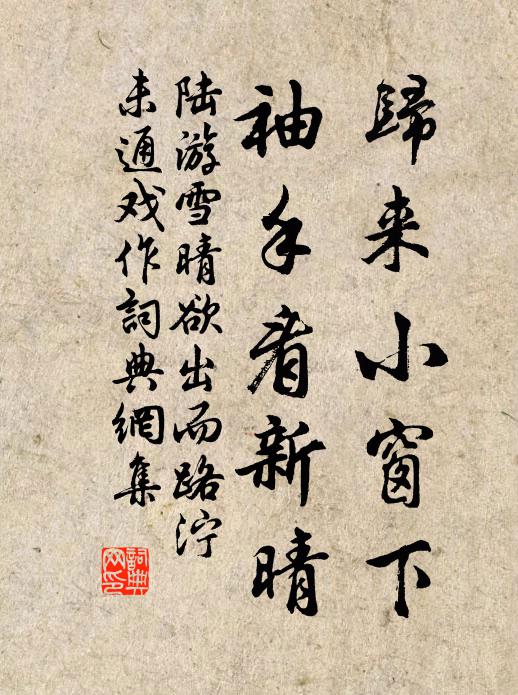 歸来小窗下
袖手看新晴
陆游雪晴欲出而路泞
未通戏作詞典網集
詞典網印